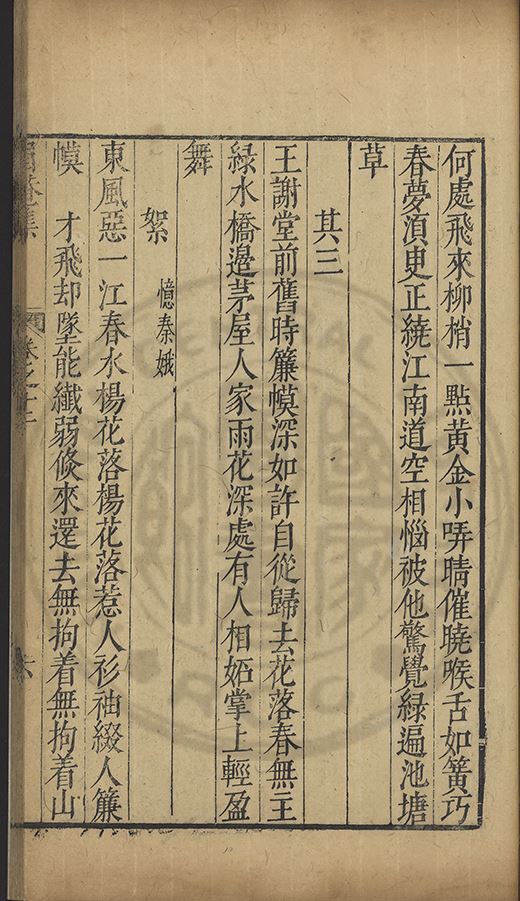 何處飛來柳梢一點黃金小哢晴催曉喉舌如簧巧
春夢湏臾正繞江南道空相惱被他驚覺綠遍池塘
草
其三
王謝堂前舊時簾幙深如許自從歸去花落春無主
綠水橋邉茅屋人家雨花深處有人相妬掌上輕盈
舞
絮 憶秦娥
東風惡一江春水楊花落楊花落惹人衫袖綴人簾
幙 才飛却墜能纖弱倐來還去無拘着無拘着山
卷之十二
六